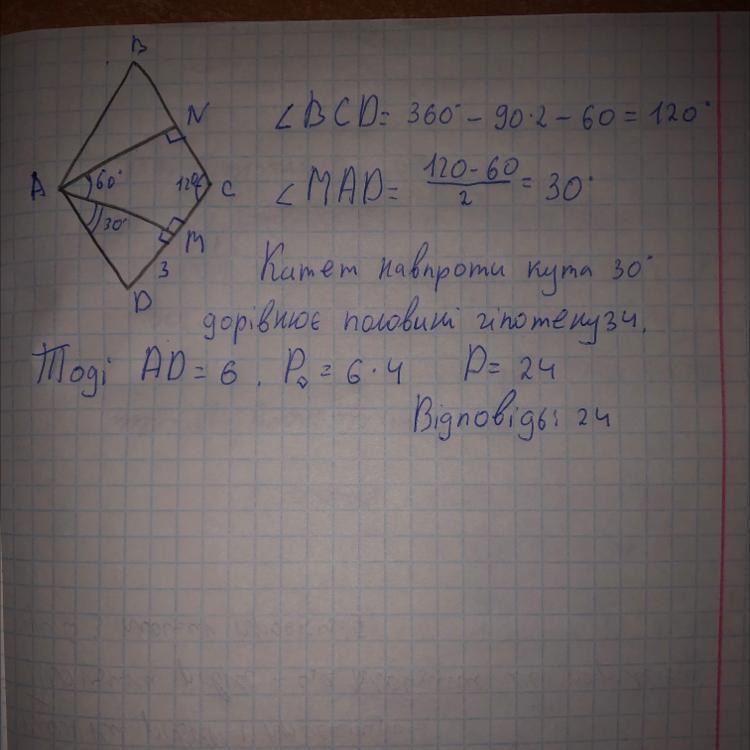 B
N
A
60°
120°
C
30°
M
3
D
∠BCD = 360° - 90·2 - 60 = 120°
∠MAD = (120 - 60)/2 = 30°
Катет навпроти кута 30°
дорівнює половині гіпотенузи.
Тоді AD = 6. P◊ = 6·4 P = 24
Відповідь: 24